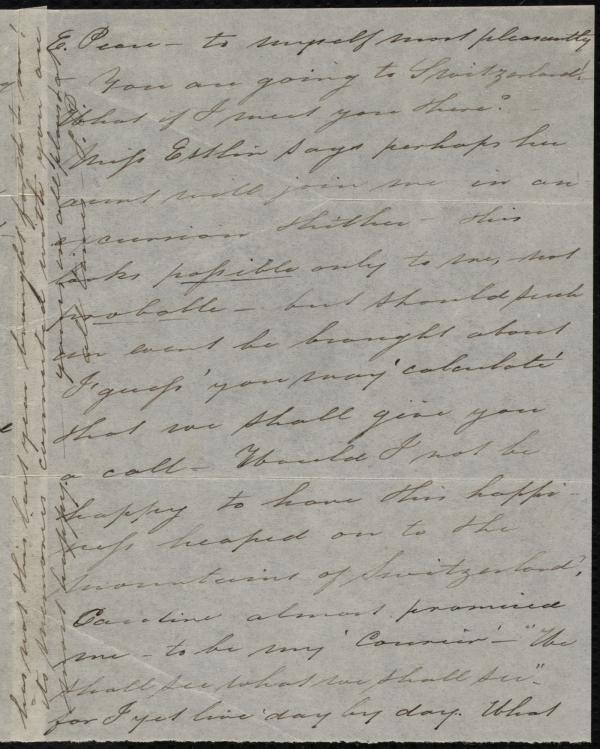 E. Pease – to myself most pleasantly
– You are going to Switzerland.
What if I meet you there?
Miss Estlin says perhaps her
aunt will join me in an
excursion thither – this
looks possible only to me, not
probable – but should such
an event be brought about
I 'guess' you may 'calculate'
that we shall give you
a call – Would I not be
happy to have this happi-
ness heaped on to the
mountains of Switzerland,
Caroline almost promised
me – to be my 'Courier' – "We
shall see what we shall see".
for I yet live day by day. What
has not this last year brought forth to me!
its memories connected with you are